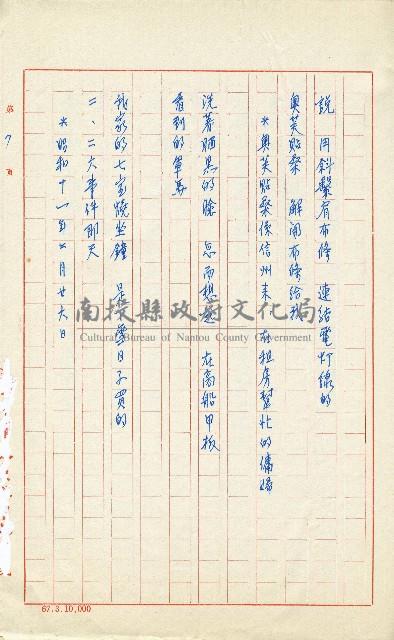 説 用斜繫有布條 連結電灯線的
奧芙貼桑 解開布條給我
*奧芙貼桑係信州来 在租房幫忙的傭婦
洗著晒黒的臉 忽而想起 在商船甲板
看到的軍馬
我家的七宝燒坐鐘 是雪日子買的
二、二六事件即天
*昭和十一年二月廿六日
第 7 頁
南投縣政府文化局
Cultural Bureau of Nantou County Government
67.3.10,000